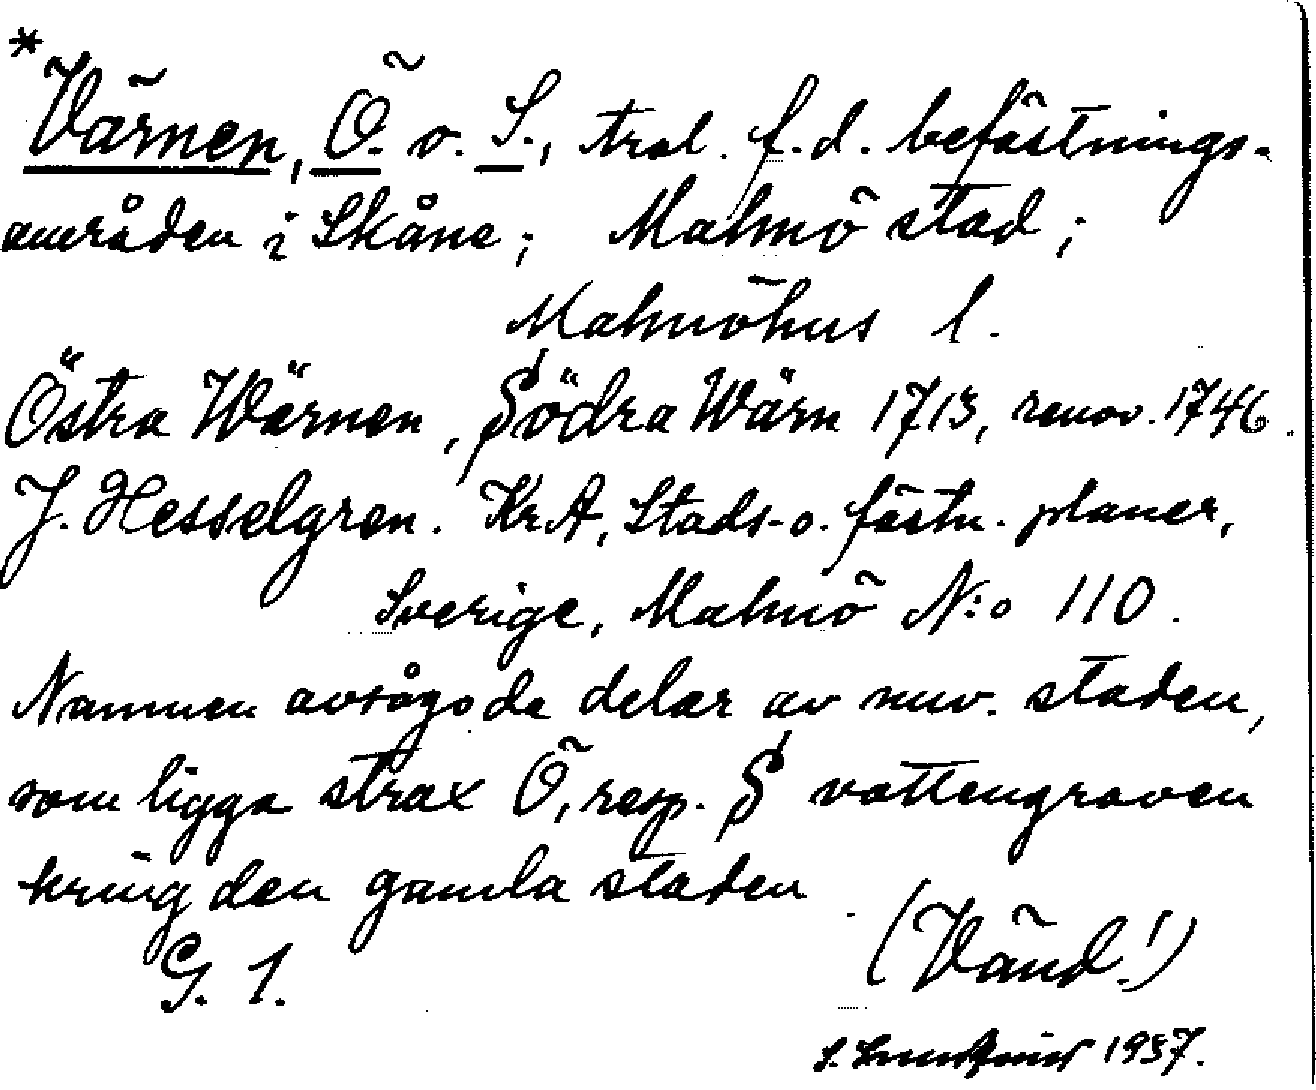 *
Värnen, Ö. o. S., trol. f.d. befästnings-
områden i Skåne; Malmö stad;
Malmöhus l.
Östra Wärnen, Södra Wärn 1713, renov. 1746.
J. Hesselgren. KrA, Stads- o. fästn. planer,
Sverige, Malmö N:o 110.
Namnen avsågo de delar av nuv. staden,
som ligga strax Ö, resp. S vattengraven
kring den gamla staden.
G. 1. (Vänd!)
S. 1937.